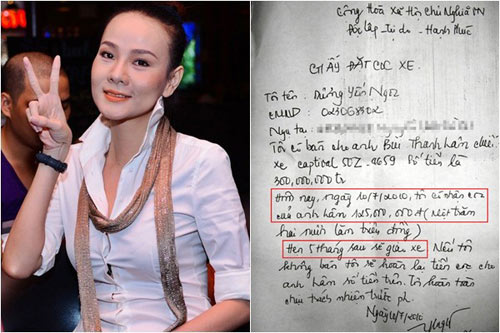 Cộng Hoà Xã Hội Chủ Nghĩa VN
Độc lập - Tự do - Hạnh Phúc
GIẤY ĐẶT CỌC XE.
Tôi tên : Dương Yến Ngọc
CMND :
Ngụ tại :
Tôi có bán cho anh Bùi Thanh Hân chiếc
xe captival 50Z. 4659 Số tiền là
300,000,000 tr
Hôm nay, ngày 10/7/2010, tôi có nhận cọc
của anh Hân 125,000,000 đ (Một trăm
hai mươi lăm triệu đồng)
Hẹn 5 tháng sau sẽ giao xe Nếu tôi
không bán tôi sẽ hoàn lại tiền cọc cho
anh Hân số tiền trên. Tôi hoàn toàn
chịu trách nhiệm trước pl.
Ngày 10/7/2010